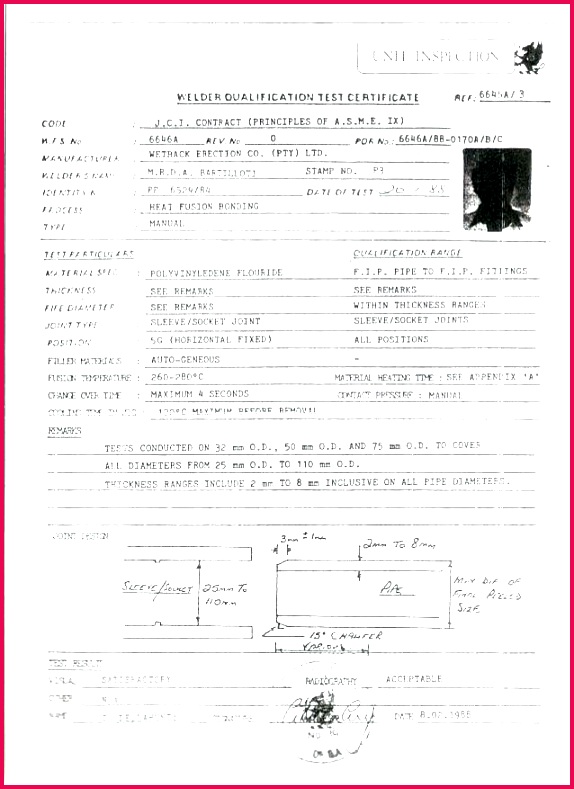 UNIT INSPECTION
WELDER QUALIFICATION TEST CERTIFICATE REF: 6646A/3
CODE : J.C.I. CONTRACT (PRINCIPLES OF A.S.M.E. IX)
W.P.S No : 6646A REV No 0 PQR No: 6646A/BB-0170A/B/C
MANUFACTURER WETBACK ERECTION CO. (PTY) LTD.
WELDER'S NAME : M.R.D.A. STAMP NO. P3
IDENTITY : PP 6524/84 DATE OF TEST
PROCESS : HEAT FUSION BONDING
TYPE MANUAL
TEST PARTICULARS QUALIFICATION RANGE
MATERIAL SPEC : POLYVINYLEDENE FLOURIDE F.I.P. PIPE TO F.I.P. FITTINGS
THICKNESS SEE REMARKS SEE REMARKS
PIPE DIAMETER SEE REMARKS WITHIN THICKNESS RANGES
JOINT TYPE SLEEVE/SOCKET JOINT SLEEVE/SOCKET JOINTS
POSITION : 5G (HORIZONTAL FIXED) ALL POSITIONS
FILLER MATERIALS : AUTO-GENEOUS -
FUSION TEMPERATURE : 260-280°C MATERIAL HEATING TIME : SEE APPENDIX 'A'
CHANGE OVER TIME : MAXIMUM 4 SECONDS CONTACT PRESSURE : MANUAL
COOLING TIME MAXIMUM BEFORE REMOVAL
REMARKS
TESTS CONDUCTED ON 32 mm O.D., 50 mm O.D. AND 75 mm O.D. TO COVER
ALL DIAMETERS FROM 25 mm O.D. TO 110 mm O.D.
THICKNESS RANGES INCLUDE 2 mm TO 8 mm INCLUSIVE ON ALL PIPE DIAMETERS.
JOINT DESIGN
3mm ± 1mm
2mm TO 8mm
SLEEVE/SOCKET
25mm TO
110mm
PIPE
SIZE
15° CHAMFER
VARIOUS
TEST RESULT
VISUAL SATISFACTORY RADIOGRAPHY ACCEPTABLE
OTHER
NAME DATE 8.02.1988